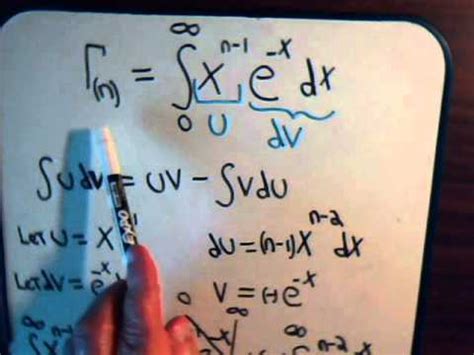 Γ(n) = ∫₀^∞ x^(n-1) e^(-x) dx
U dV
∫UdV = UV - ∫VdU
LET U = X dU = (n-1)X^(n-2) dx
LET dV = e^(-x) V = (-)e^(-x)